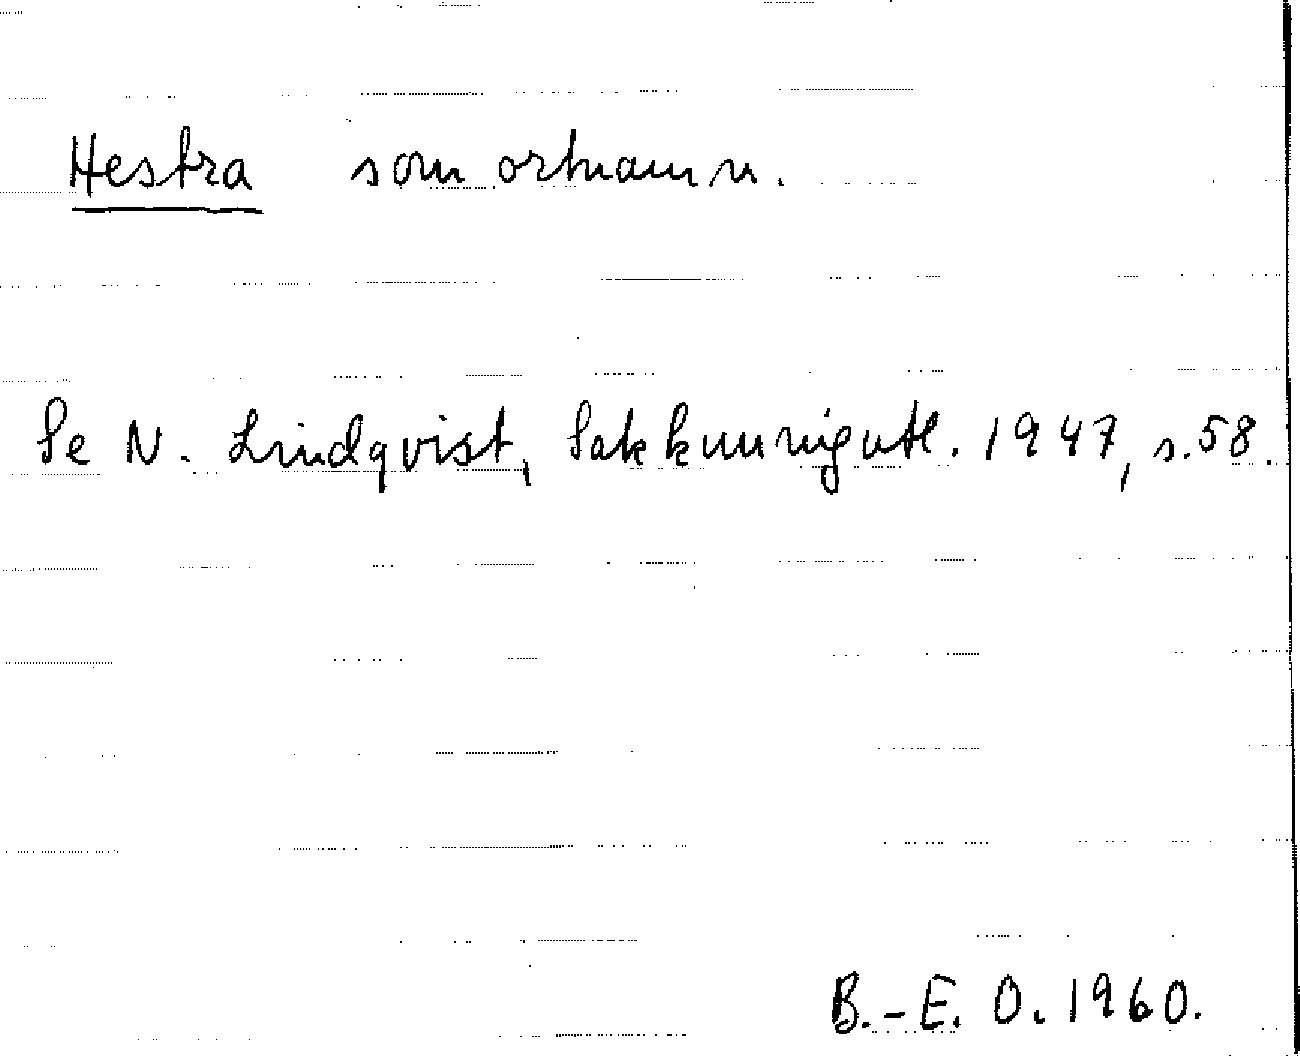 Hestra som ortnamn.
Se N. Lindqvist, Sakkunnigutl. 1947, s. 58.
B.-E. O. 1960.